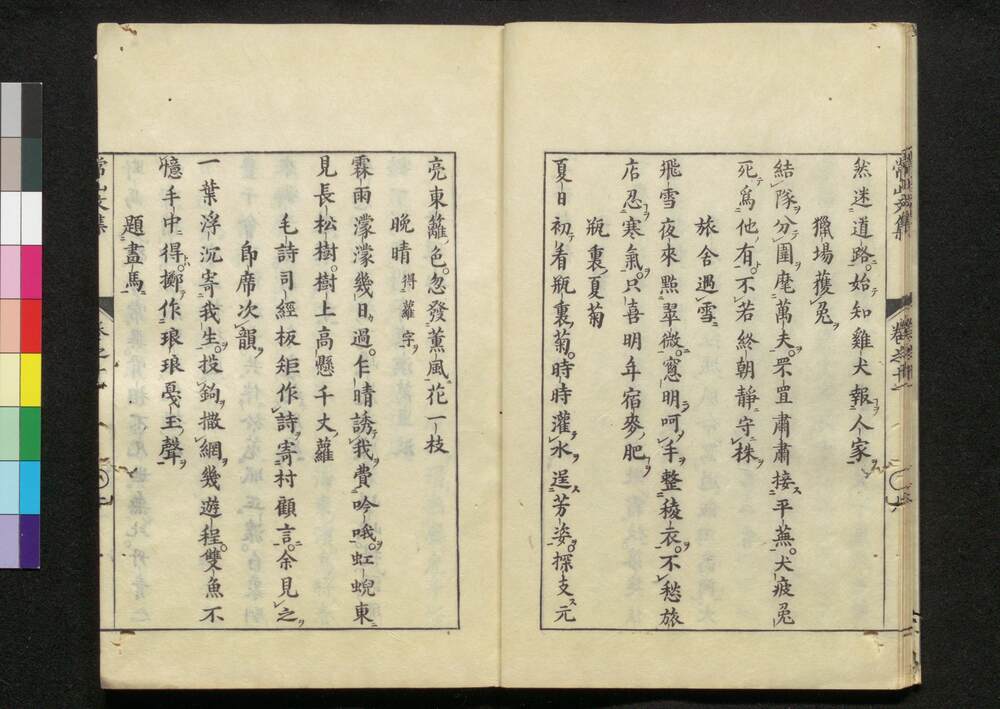 然迷道路。始知雞犬報人家
獵場獲兔
結隊分圍麾萬夫。罘罝肅肅接平蕪。犬疲兔
死爲他有。不若終朝靜守株
旅舍過雪
飛雪夜來點翠微。窓明呵手整稜衣。不愁旅
店忍寒氣。只喜明年宿麥肥
瓶裏夏菊
夏日初看瓶裏菊。時時灌水逞芳姿。探支元
亮東籬色。忽發薰風花一枝
晚晴 得蘿字
霖雨濛濛幾日過。乍晴誘我費吟哦。虹蜺東
見長松樹。樹上高懸千丈蘿
毛詩司經板矩作詩寄村顧言。余見之
卽席次韻
一葉浮沉寄我生。投鉤撒網幾遊程。雙魚不
憶手中得。擲作琅琅戞玉聲
題畫馬
常山文集